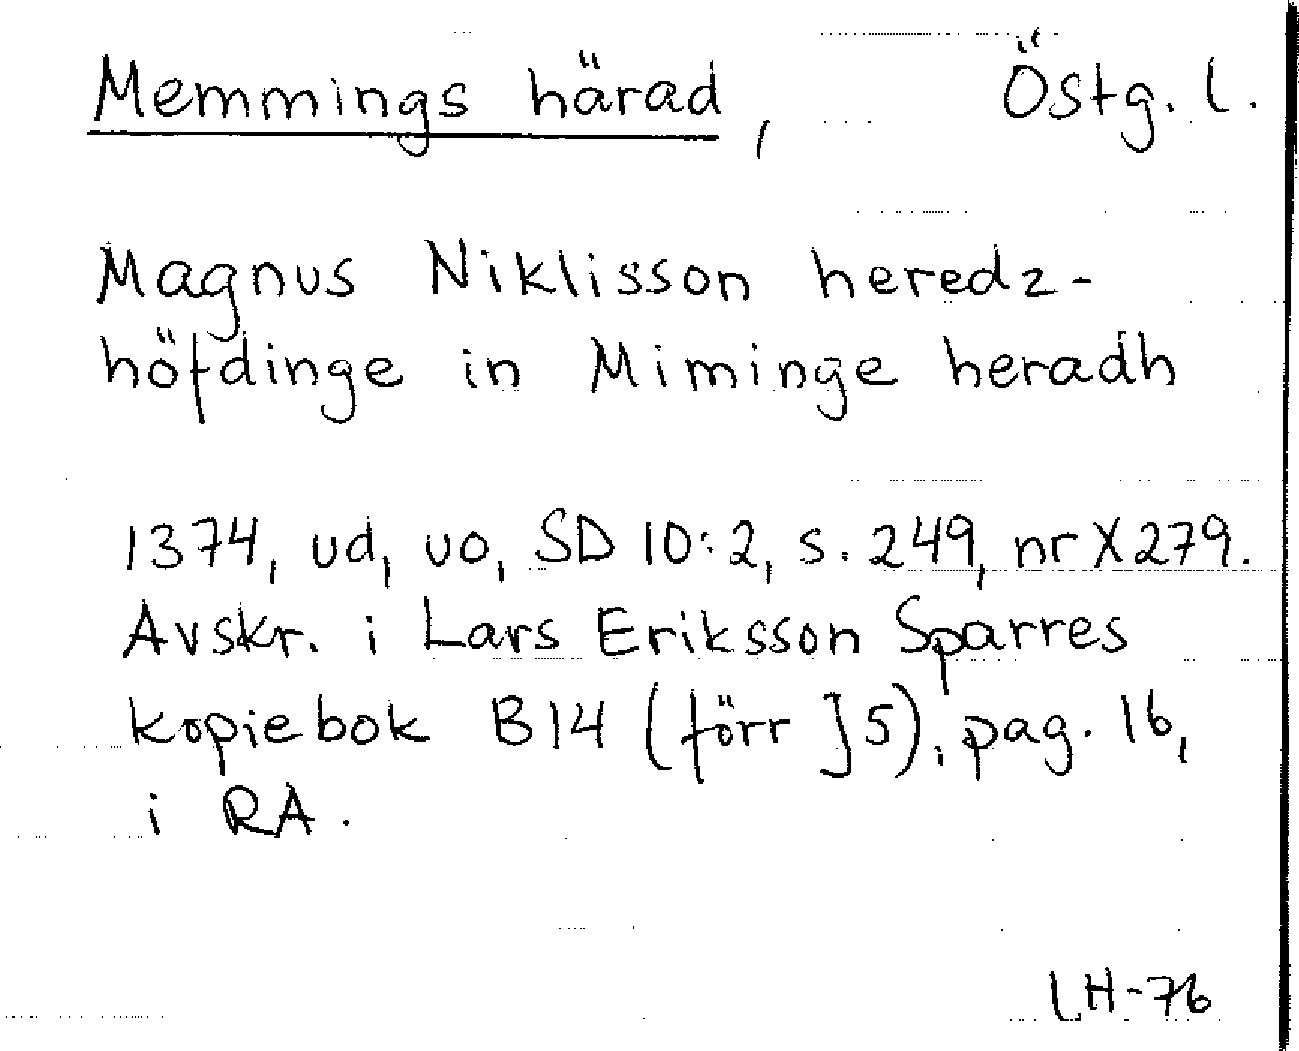 Memmings härad, Östg. l.
Magnus Niklisson heredz-
höfdinge in Miminge heradh
1374, ud, uo, SD 10:2, s. 249, nr X279.
Avskr. i Lars Eriksson Sparres
kopiebok B14 (förr J5), pag. 16,
i RA.
LH-76